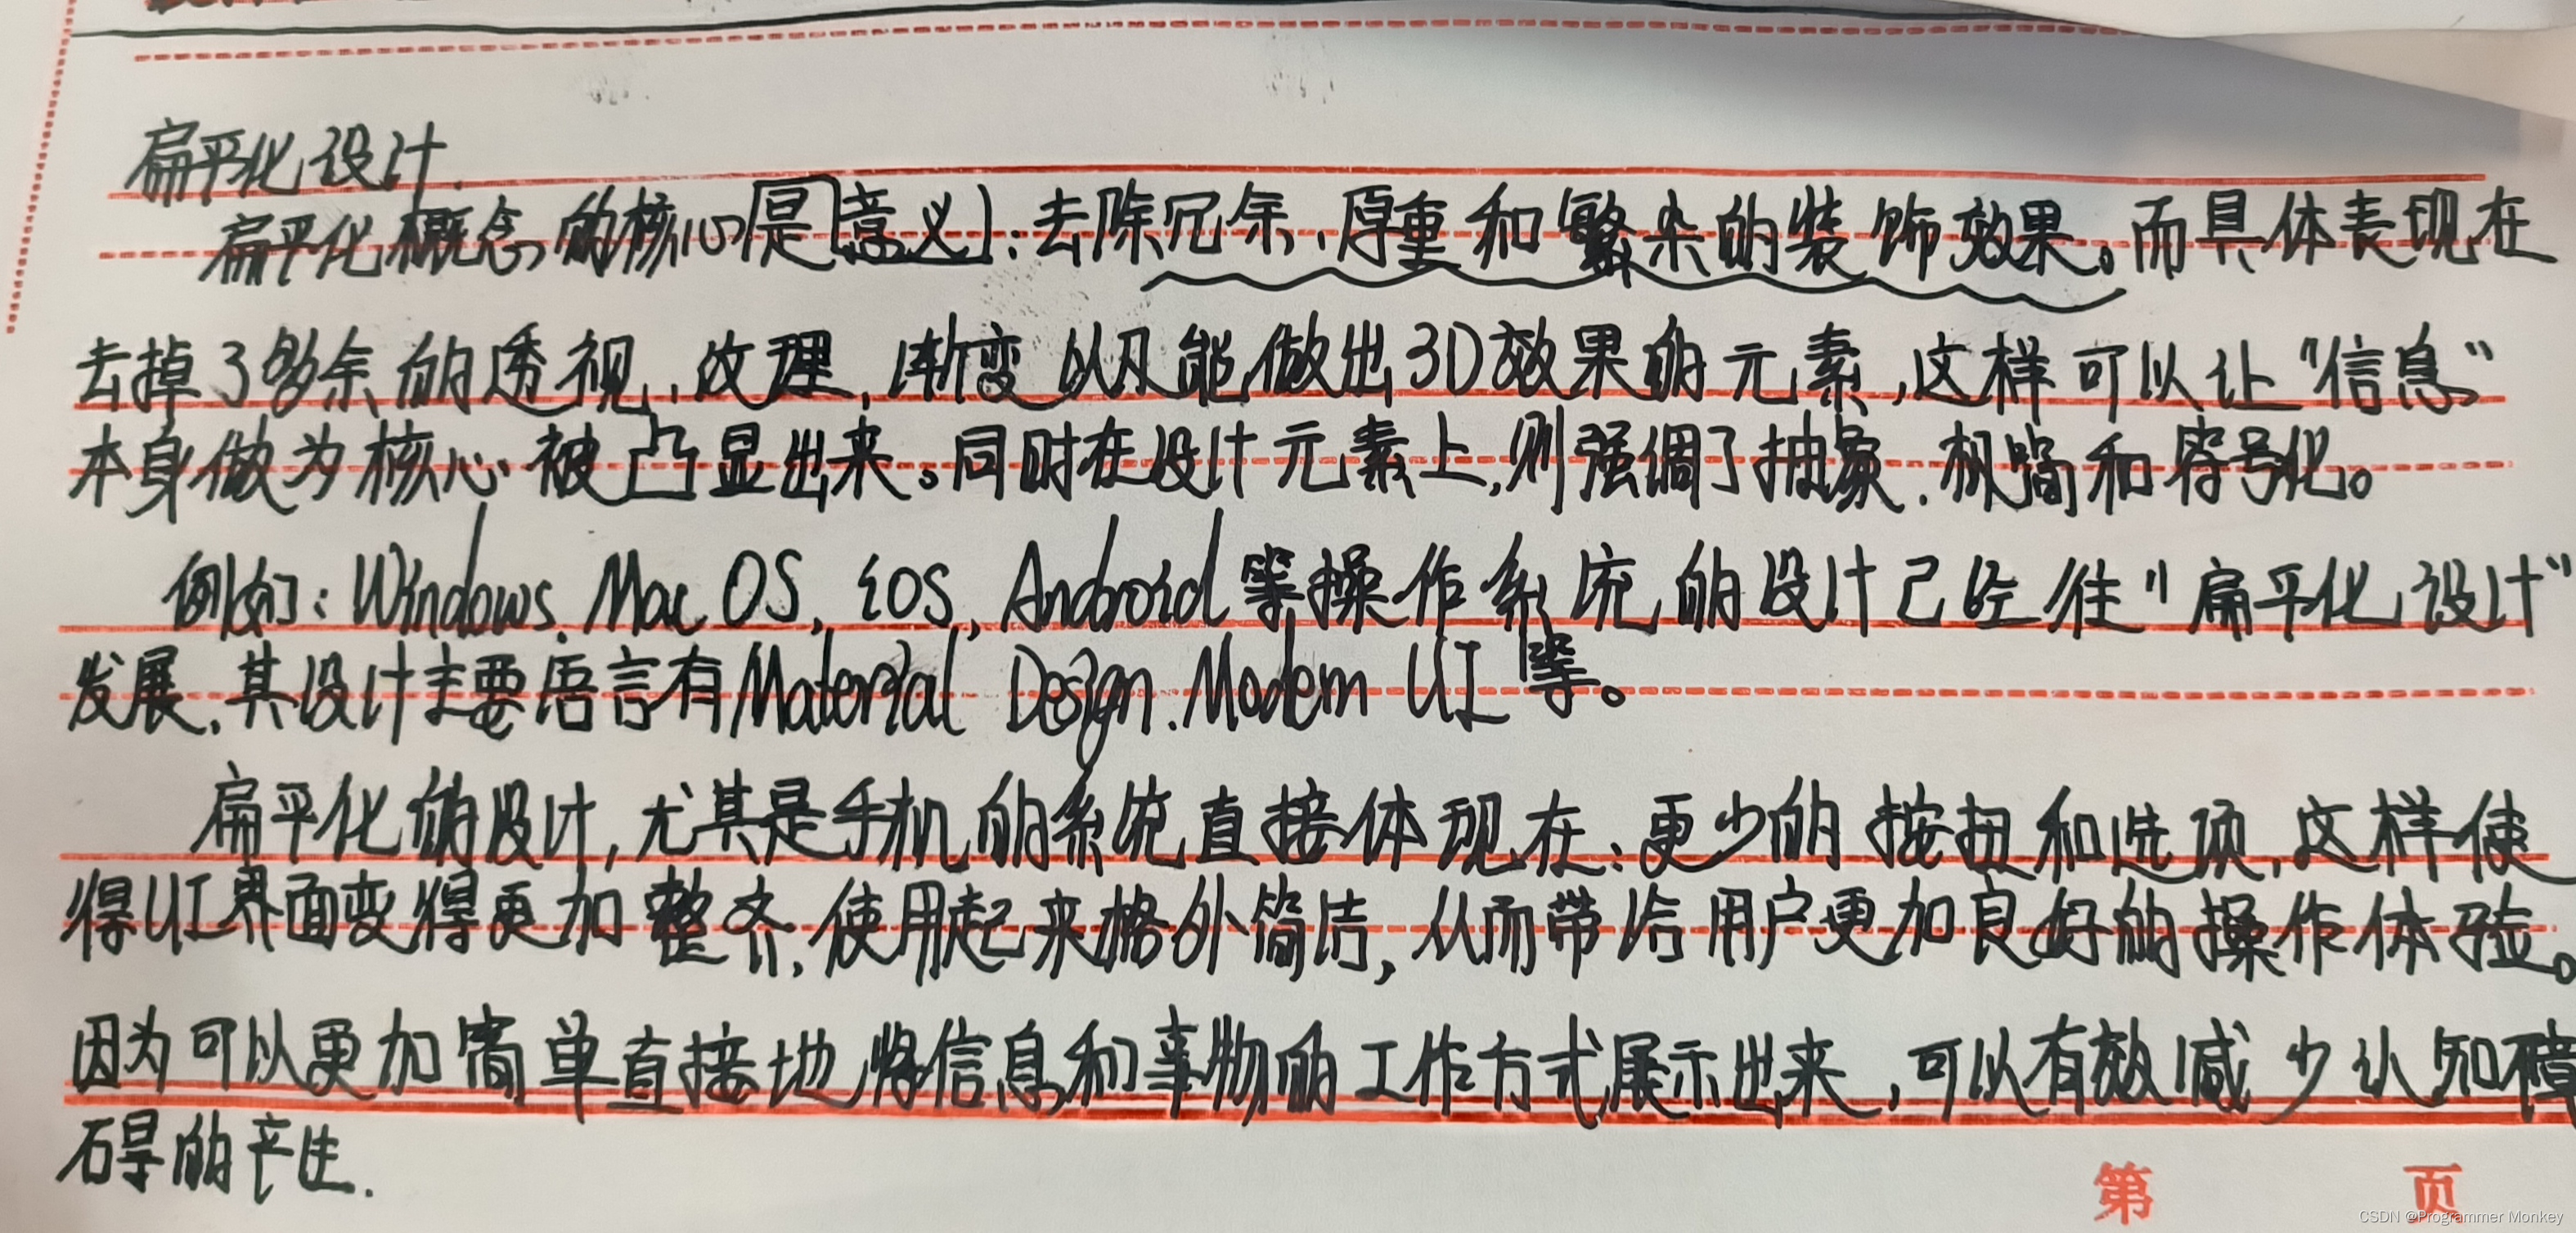 扁平化设计.
扁平化概念的核心是[意义]:去除冗余、厚重和繁杂的装饰效果。而具体表现在
去掉了多余的透视、纹理,渐变以及能做出3D效果的元素,这样可以让"信息"
本身做为核心被凸显出来。同时在设计元素上,则强调了抽象、极简和符号化。
例如:Windows、Mac OS, iOS, Android等操作系统的设计已经往"扁平化设计"
发展,其设计主要语言有Material Design、Modern UI 等。
扁平化的设计,尤其是手机的系统直接体现在:更少的按扭和选项,这样使
得UI界面变得更加整齐,使用起来格外简洁,从而带给用户更加良好的操作体验。
因为可以更加简单直接地将信息和事物的工作方式展示出来,可以有效减少认知障
碍的产生.
第 页
CSDN @Programmer Monkey